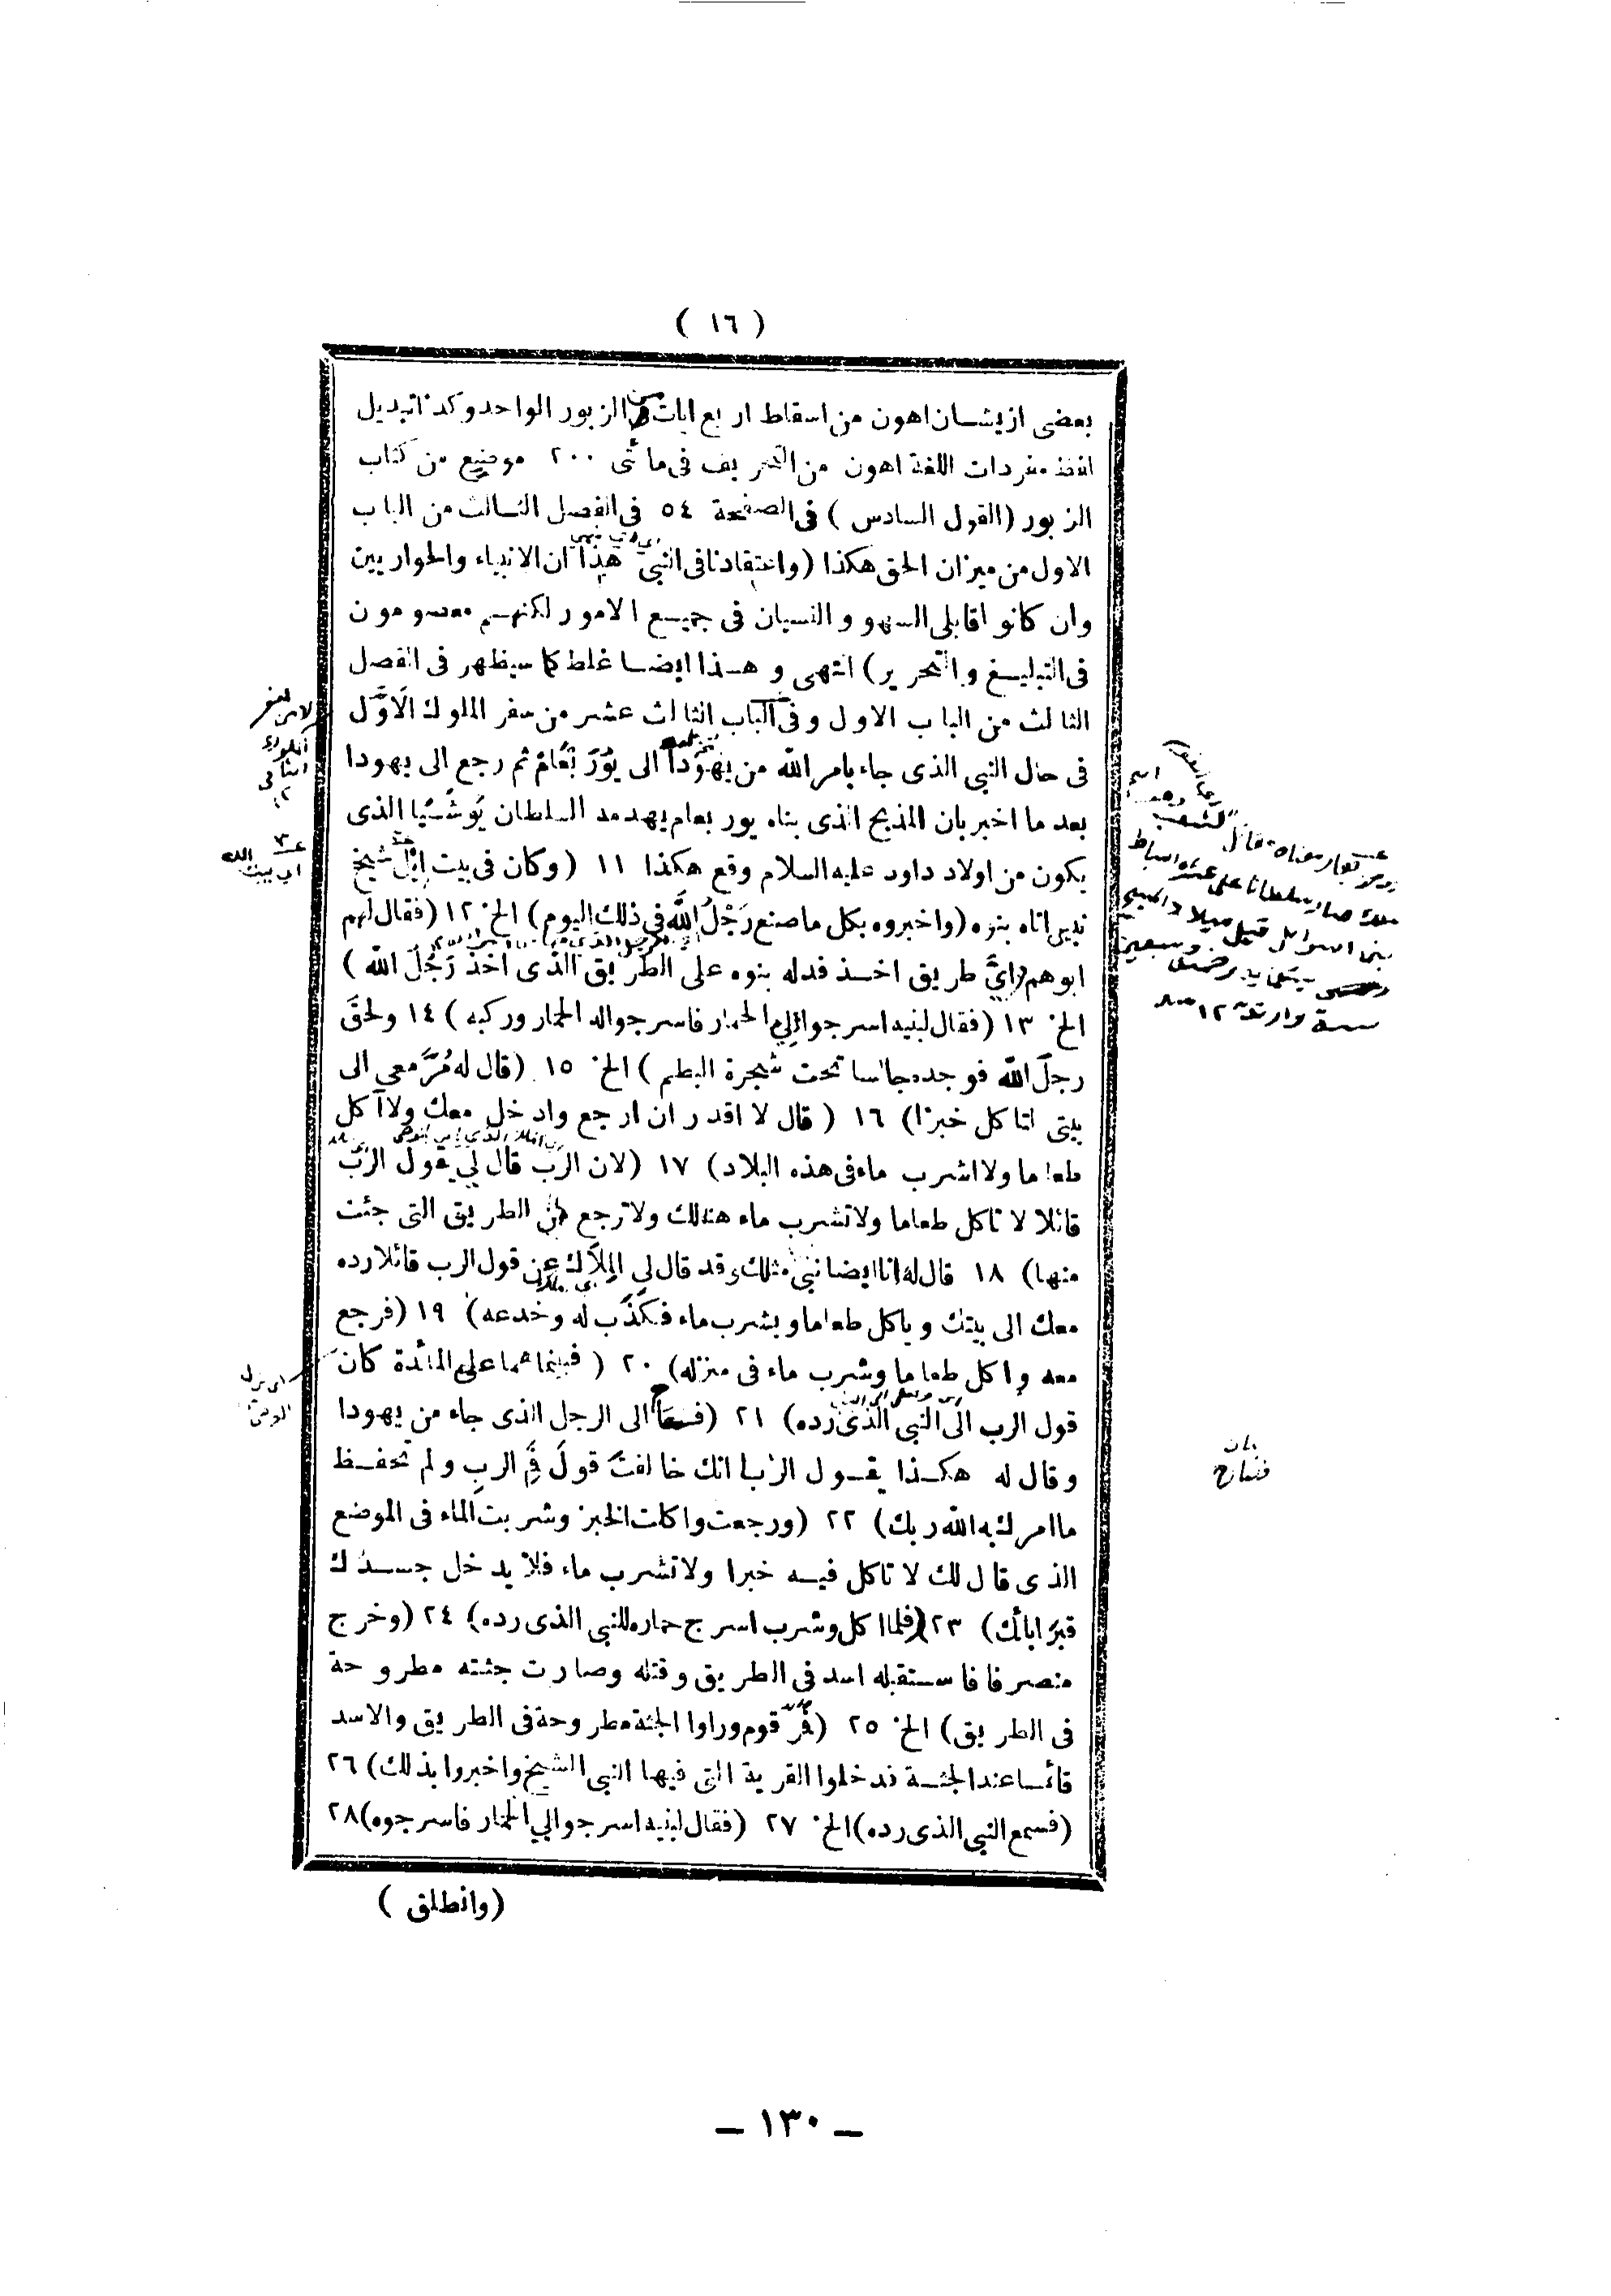 ( ١٦ )
بعضى ازيشان اهون من اسقاط اربع ايات من الزبور الواحد وكذا تبديل
لفظ مفردات اللغة اهون من التحريف فى مأتى ٢٠٠ موضع من كتاب
الزبور (القول السادس) فى الصفحة ٥٤ فى الفصل الثالث من الباب
الاول من ميزان الحق هكذا (واعتقادنا فى النبى هذا ان الانبياء والحواريين
وان كانوا قابلى السهو والنسيان فى جميع الامور لكنهم معصومون
فى التبليغ والتحرير) انتهى وهذا ايضا غلط كما سيظهر فى الفصل
الثالث من الباب الاول وفى الباب الثالث عشر من سفر الملوك الاَوَّل
فى حال النبى الذى جاء بامر الله من يهودا الى يُوْرَ بَعَامْ ثم رجع الى يهودا
بعد ما اخبر بان المذبح الذى بناه يور بعام يهدمه السلطان يُوشَيَا الذى
يكون من اولاد داود عليه السلام وقع هكذا ١١ (وكان فى بيت اِيْل شيخ
نبى اتاه بنوه (واخبروه بكل ما صنع رَجُلُ اللَّه فى ذلك اليوم) الخ ١٢ (فقال لهم
ابوهم اىَّ طريق اخذ فدله بنوه على الطريق الذى اخذ رَجُلُ الله)
الخ ١٣ (فقال لبنيه اسرجوا لى الحمار فاسرجوا له الحمار وركبه) ١٤ ولحق
رجلَ الله فوجده جالسا تحت شجرة البطم) الخ ١٥ (قال له مُرَّ معى الى
بيتى لتاكل خبزا) ١٦ (قال لا اقدر ان ارجع وادخل معك ولا آكل
طعاما ولا اشرب ماء فى هذه البلاد) ١٧ (لان الرب قال لي يقول الرب
قائلا لا تاكل طعاما ولا تشرب ماء هنالك ولا ترجع فى الطريق التى جئت
منها) ١٨ قال له انا ايضا نبى مثلك وقد قال لى الملاك عن قول الرب قائلا رده
معك الى بيتك وياكل طعاما ويشرب ماء فكذَّب له وخدعه) ١٩ (فرجع
معه واكل طعاما وشرب ماء فى منزله) ٢٠ (فبينما هما على المائدة كان
قول الرب الى النبى الذى رده) ٢١ (الى الرجل الذى جاء من يهودا
وقال له هكذا يقول الرب انك خالفت قولَ فَمِ الرب ولم تحفظ
ما امرك به الله ربك) ٢٢ (ورجعت واكلت الخبز وشربت الماء فى الموضع
الذى قال لك لا تاكل فيه خبرا ولا تشرب ماء فلا يدخل جسدك
قبرَ ابائك) ٢٣ (فلما اكل وشرب اسرج حماره للنبى الذى رده) ٢٤ (وخرج
منصرفا فاستقبله اسد فى الطريق وقتله وصارت جثته مطروحة
فى الطريق) الخ ٢٥ (فمرَّ قوم وراوا الجثة مطروحة فى الطريق والاسد
قائما عند الجثة فدخلوا القرية التى فيها النبى الشيخ واخبروا بذلك) ٢٦
(فسمع النبى الذى رده) الخ ٢٧ (فقال لبنيه اسرجوا لي الحمار فاسرجوه) ٢٨
(وانطلق)
– ١٣٠ –